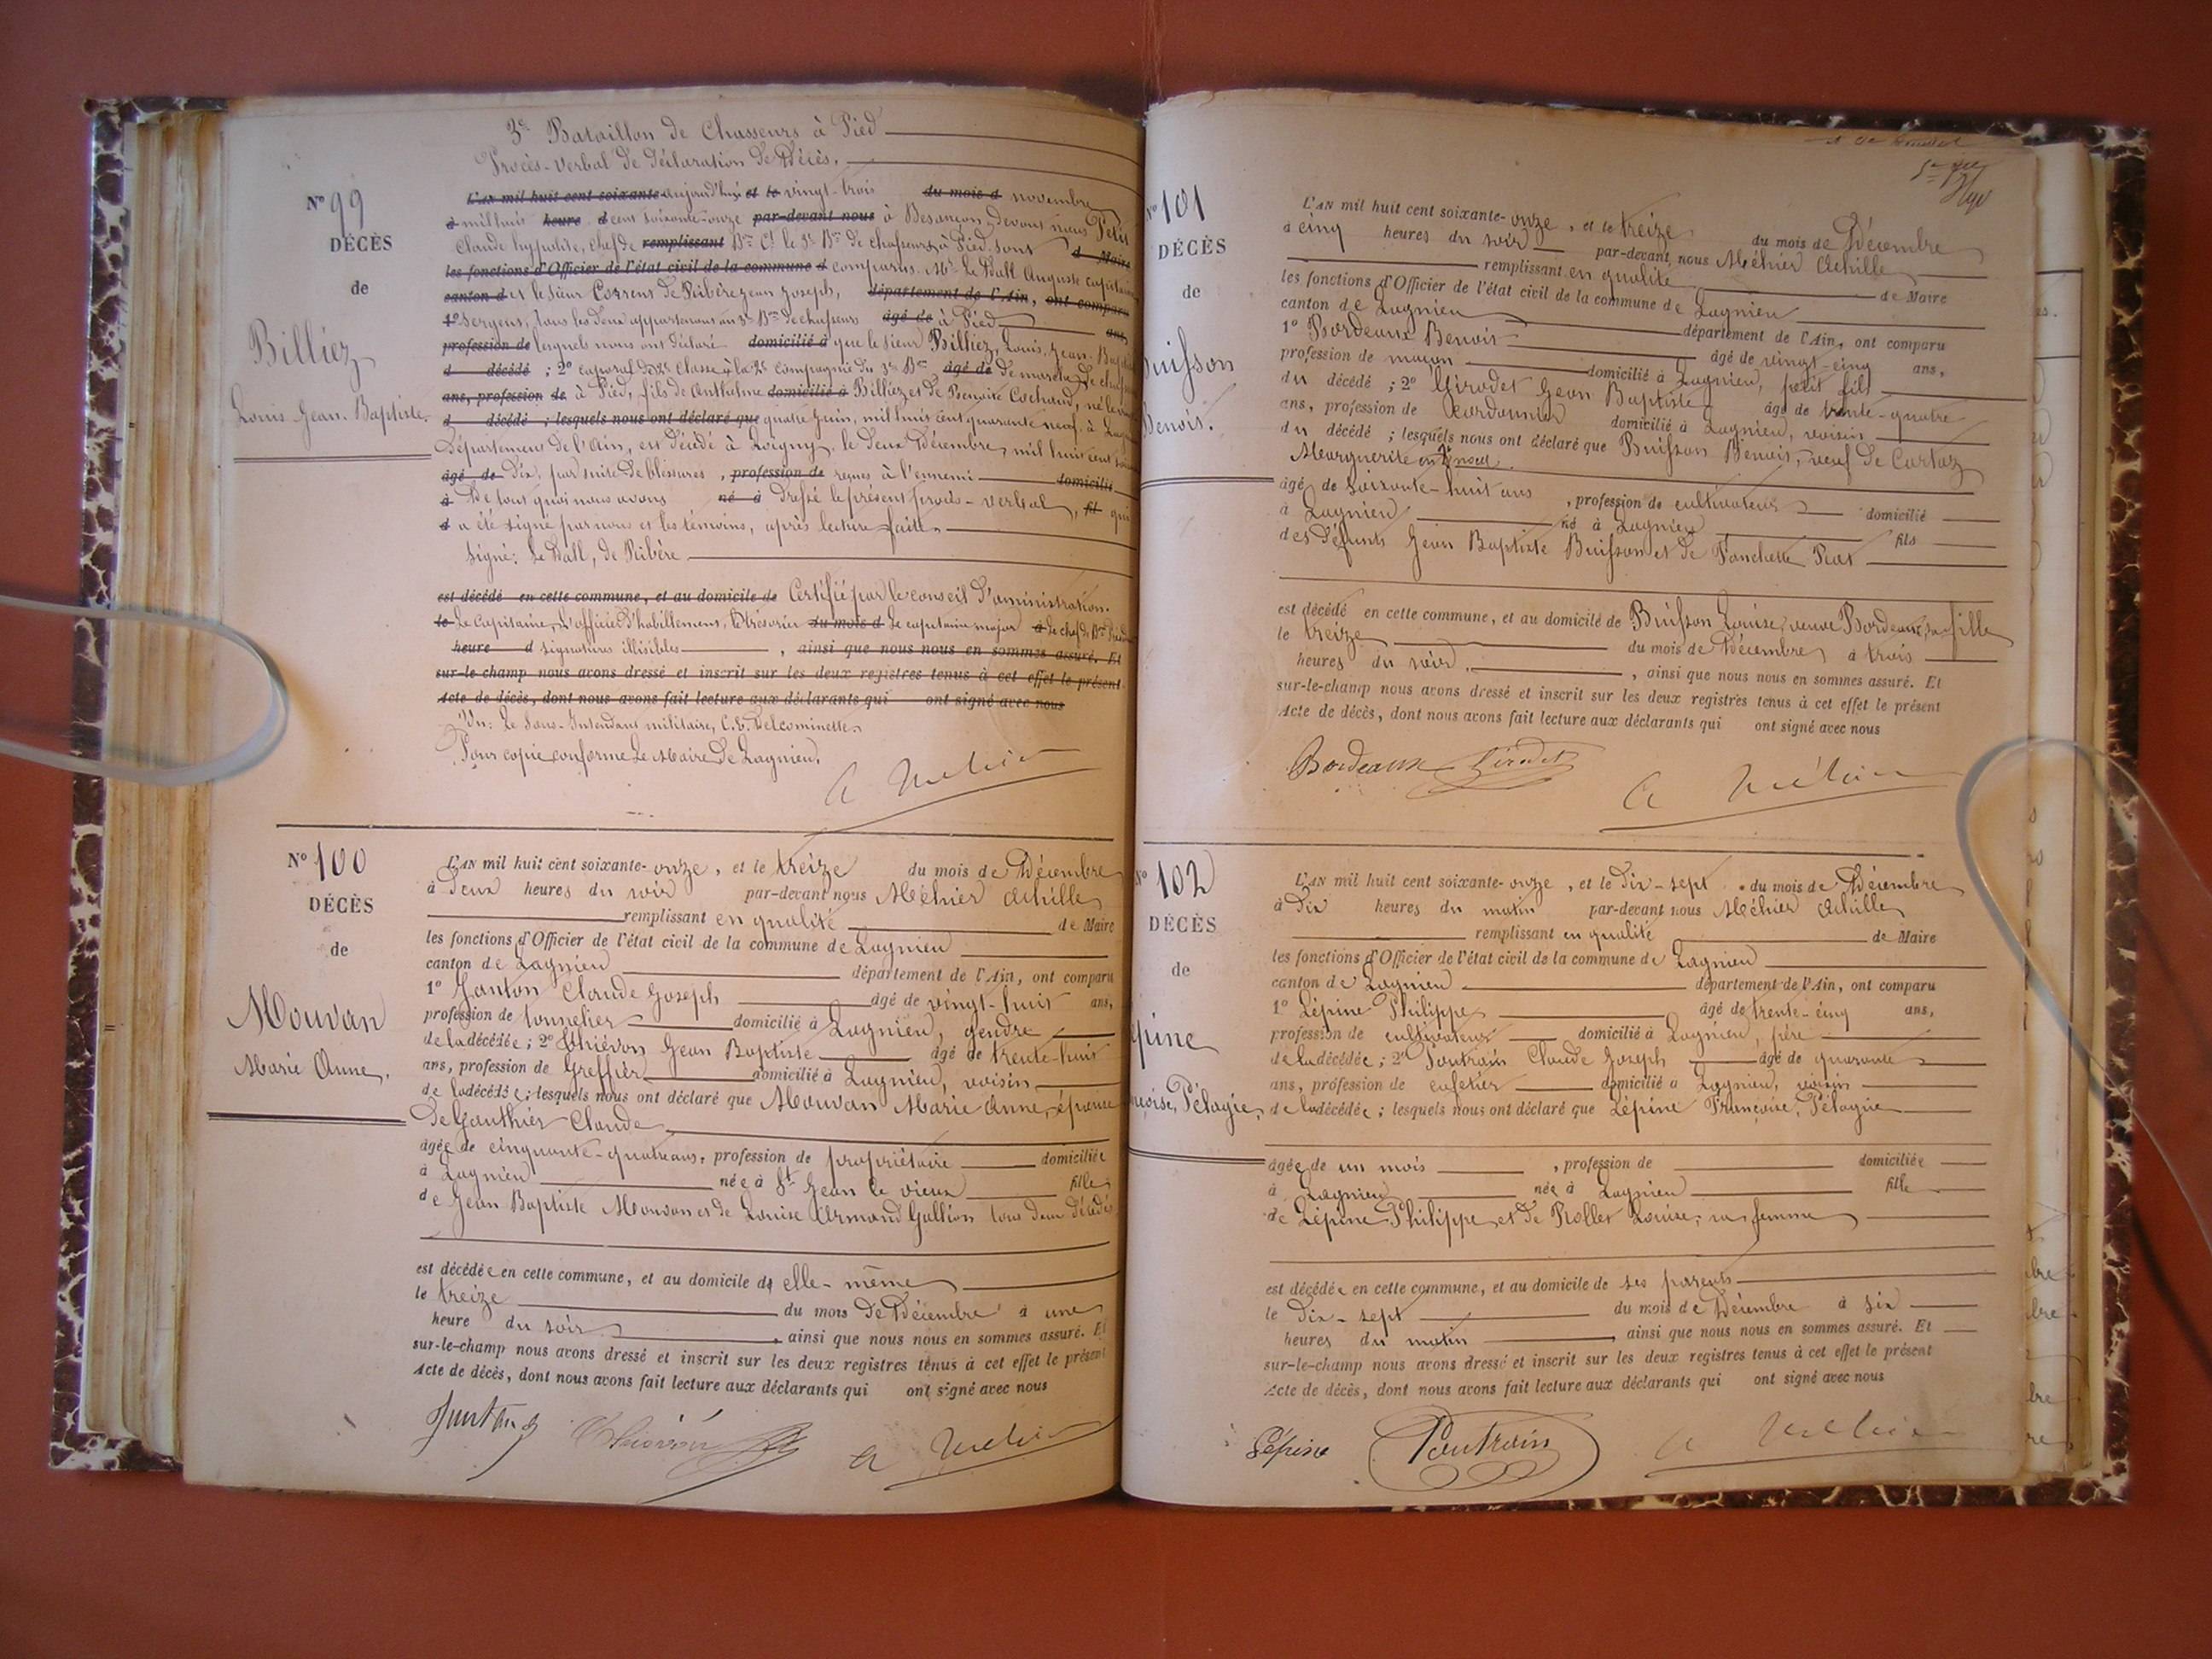 3e Bataillon de Chasseurs à Pied
Procès-verbal de déclaration de Décès.
N° 99
DÉCÈS
de
Billiez
Louis Jean-Baptiste.
L'AN mil huit cent soixante aujourd'hui et le vingt-trois du mois d novembre
à mil huit heure d cent soixante-onze par-devant nous à Besançon, devant nous Petit
Claude hypolite, chef de remplissant Bon Ct le 3e Bon de chasseurs à Pied sont d Maire
les fonctions d'Officier de l'état civil de la commune d comparus Mr Le Dall Auguste capitaine
canton d et le sieur de Ribère Jean Joseph, département de l'Ain, ont comparu
1° sergent, tous les deux appartenant au 3e Bon de chasseurs âgé de à Pied ans,
profession de lesquels nous ont déclaré domicilié à que le sieur Billiez, Louis, Jean-Baptiste
d décédé ; 2° caporal de 2e classe à la 2e compagnie du 3e Bon âgé de de marche de chasseurs
ans, profession de à Pied, fils de Anthelme domicilié à Billiez et de Benoite Cochand, né le
d décédé ; lesquels nous ont déclaré que quatre Juin, mil huit cent quarante neuf à
Département de l'Ain, est décédé à Loigny, le deux Décembre, mil huit cent
âgé de dix, par suite de blessures , profession de reçues à l'ennemi domicilié
à De tout quoi nous avons né à dressé le présent procès-verbal, fil qui
d a été signé par nous et les témoins, après lecture faite.
Signé: Le Dall, de Ribère
est décédé en cette commune, et au domicile de Certifié par le conseil d'aministration.
le Le Capitaine, L'officier d'habillement, le trésorier du mois d Le capitaine major à le chef de Bon
heure d signatures illisibles , ainsi que nous nous en sommes assuré. Et
sur-le champ nous avons dressé et inscrit sur les deux registres tenus à cet effet le présent
Acte de décès, dont nous avons fait lecture aux déclarants qui ont signé avec nous
Vu: Le Sous-Intendant militaire, C. E. Delcominette
Pour copie conforme Le Maire de Lagnieu.
A Méhier
N° 100
DÉCÈS
de
Mouvan
Marie Anne.
L'AN mil huit cent soixante-onze, et le treize du mois de Décembre
à deux heures du soir par-devant nous Méhier Achille
remplissant en qualité de Maire
les fonctions d'Officier de l'état civil de la commune de Lagnieu
canton de Lagnieu département de l'Ain, ont comparu
1° Janton Claude Joseph âgé de vingt-huit ans,
profession de tonnelier domicilié à Lagnieu, gendre
de la décédée ; 2° Thiévon Jean Baptiste âgé de trente-huit
ans, profession de Greffier domicilié à Lagnieu, voisin
de la décédée ; lesquels nous ont déclaré que Mouvan Marie Anne, épouse
de Gauthier Claude
âgée de cinquante-quatre ans, profession de propriétaire domiciliée
à Lagnieu née à St Jean le vieux fille
de Jean Baptiste Mouvan et de Louise Armand Gallion tous deux décédés
est décédée en cette commune, et au domicile de elle-même
le treize du mois de Décembre à une
heure du soir , ainsi que nous nous en sommes assuré. Et
sur-le-champ nous avons dressé et inscrit sur les deux registres tenus à cet effet le présent
Acte de décès, dont nous avons fait lecture aux déclarants qui ont signé avec nous
Janton Thiévon A Méhier
N° 101
DÉCÈS
de
Buisson
Benoit.
L'AN mil huit cent soixante-onze, et le treize du mois de Décembre
à cinq heures du soir par-devant nous Méhier Achille
remplissant en qualité de Maire
les fonctions d'Officier de l'état civil de la commune de Lagnieu
canton de Lagnieu département de l'Ain, ont comparu
1° Bordeaux Benoit âgé de vingt-cinq ans,
profession de maçon domicilié à Lagnieu, petit fils
du décédé ; 2° Girodet Jean Baptiste âgé de trente-quatre
ans, profession de cordonnier domicilié à Lagnieu, voisin
du décédé ; lesquels nous ont déclaré que Buisson Benoit, veuf de Cartaz
Marguerite
âgé de soixante-huit ans , profession de cultivateur domicilié
à Lagnieu né à Lagnieu fils
des défunts Jean Baptiste Buisson et de Fanchette Prat
est décédé en cette commune, et au domicile de Buisson Louise, veuve Bordeaux, sa fille
le treize du mois de Décembre à trois
heures du soir , ainsi que nous nous en sommes assuré. Et
sur-le-champ nous avons dressé et inscrit sur les deux registres tenus à cet effet le présent
Acte de décès, dont nous avons fait lecture aux déclarants qui ont signé avec nous
Bordeaux Girodet A Méhier
N° 102
DÉCÈS
de
épine
nçoise, Pélagie,
L'AN mil huit cent soixante-onze, et le dix-sept du mois de Décembre
à dix heures du matin par-devant nous Méhier Achille
remplissant en qualité de Maire
les fonctions d'Officier de l'état civil de la commune de Lagnieu
canton de Lagnieu département de l'Ain, ont comparu
1° Lépine Philippe âgé de trente-cinq ans,
profession de cultivateur domicilié à Lagnieu, père
de la décédée ; 2° Poutrain Claude Joseph âgé de quarante
ans, profession de cafetier domicilié à Lagnieu, voisin
de la décédée ; lesquels nous ont déclaré que Lépine Françoise, Pélagie
âgée de un mois , profession de domiciliée
à Lagnieu née à Lagnieu fille
de Lépine Philippe et de Rollet Louise, sa femme
est décédée en cette commune, et au domicile de ses parents
le dix-sept du mois de Décembre à six
heures du matin , ainsi que nous nous en sommes assuré. Et
sur-le-champ nous avons dressé et inscrit sur les deux registres tenus à cet effet le présent
Acte de décès, dont nous avons fait lecture aux déclarants qui ont signé avec nous
Lépine Poutrain A Méhier